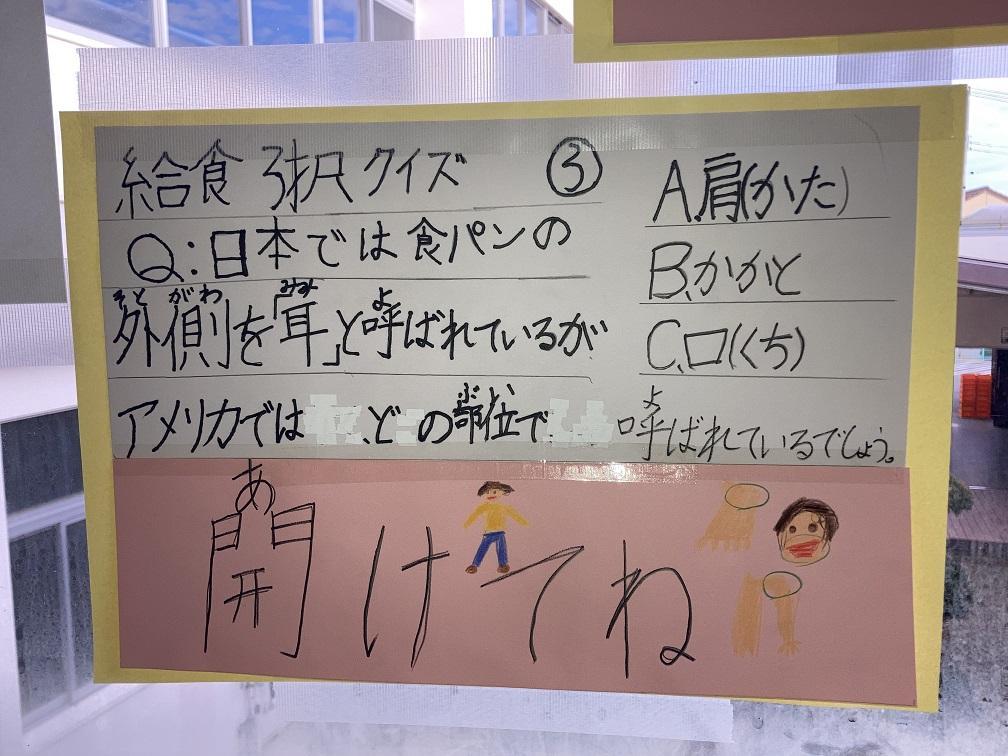 給食 3択クイズ ③
Q:日本では食パンの
そと がわ みみ よ
外側を「耳」と呼ばれているが
ぶい よ
アメリカでは、どこの部位で 呼ばれているでしょう。
A.肩(かた)
B.かかと
C.口(くち)
あ
開けてね